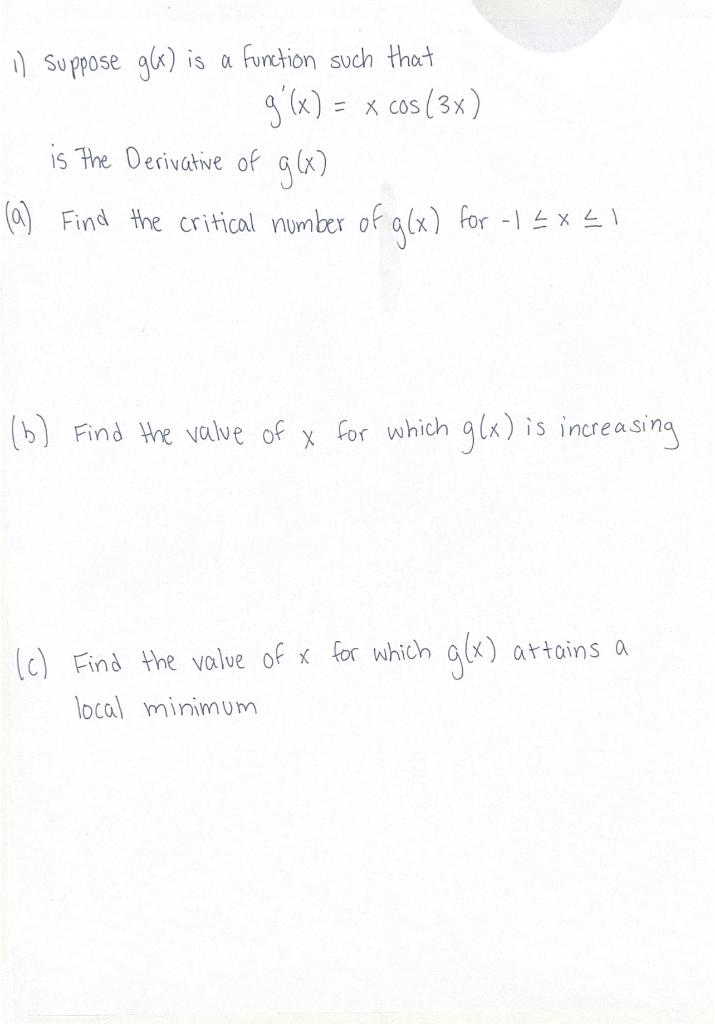 1) Suppose g(x) is a function such that
g'(x) = x cos(3x)
is The Derivative of g(x)
(a) Find the critical number of g(x) for -1 ≤ x ≤ 1
(b) Find the value of x for which g(x) is increasing
(c) Find the value of x for which g(x) attains a
local minimum